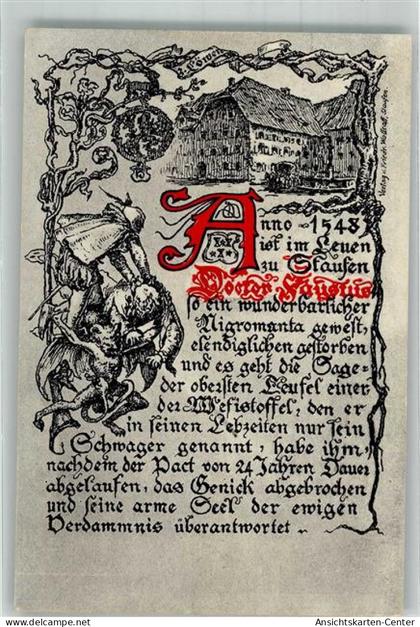 Löwen
Verlag v. Friedr. Wolfraß, Staufen.
Anno 1548
ist im Leuen
zu Staufen
Doctor Faustus
so ein wunderbarlicher
Nigromanta gewest,
elendiglichen gestorben
und es geht die Sage
der obersten Teufel einer
der Mefistoffel, den er
in seinen Lebzeiten nur sein
Schwager genannt, habe ihm,
nachdem der Pact von 24 Jahren Dauer
abgelaufen, das Genick abgebrochen
und seine arme Seel der ewigen
Verdammnis überantwortet
Ansichtskarten-Center